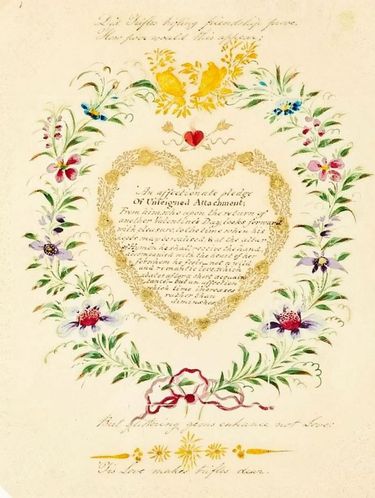 Did Trifles by being friendship prove.
How poor would this appear;
An affectionate pledge
Of Unfeigned Attachment;
From him, who upon the return of
another Valentine's Day, looks forward
with pleasure, to the time when his
hopes may be realized, that the altar
of Hymen he shall receive the hand
accompanied with the heart of her
for whom he feels, not a wild
and romantic love, which
ceases after a short acquain
tance, but an affection
which time increases
rather than
diminishes.
But glittering gems enhance not Love:
Tis Love makes trifles dear.